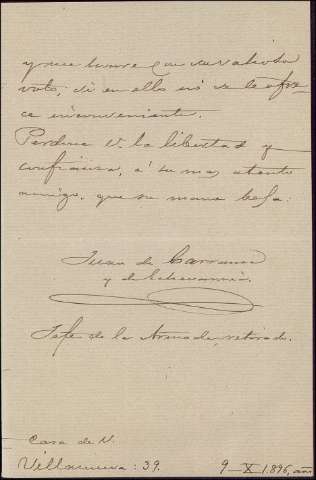 y me honre con su valioso
voto, si en ello no se le ofre-
ce inconveniente.
Perdone V. la libertad y
confianza, á su mas atento
amigo, que su mano besa:
Juan de Carranza
y de Echevarria.
Jefe de la Armada, retirado.
Casa de V.
Villanueva: 39. 9-X-1.896, año